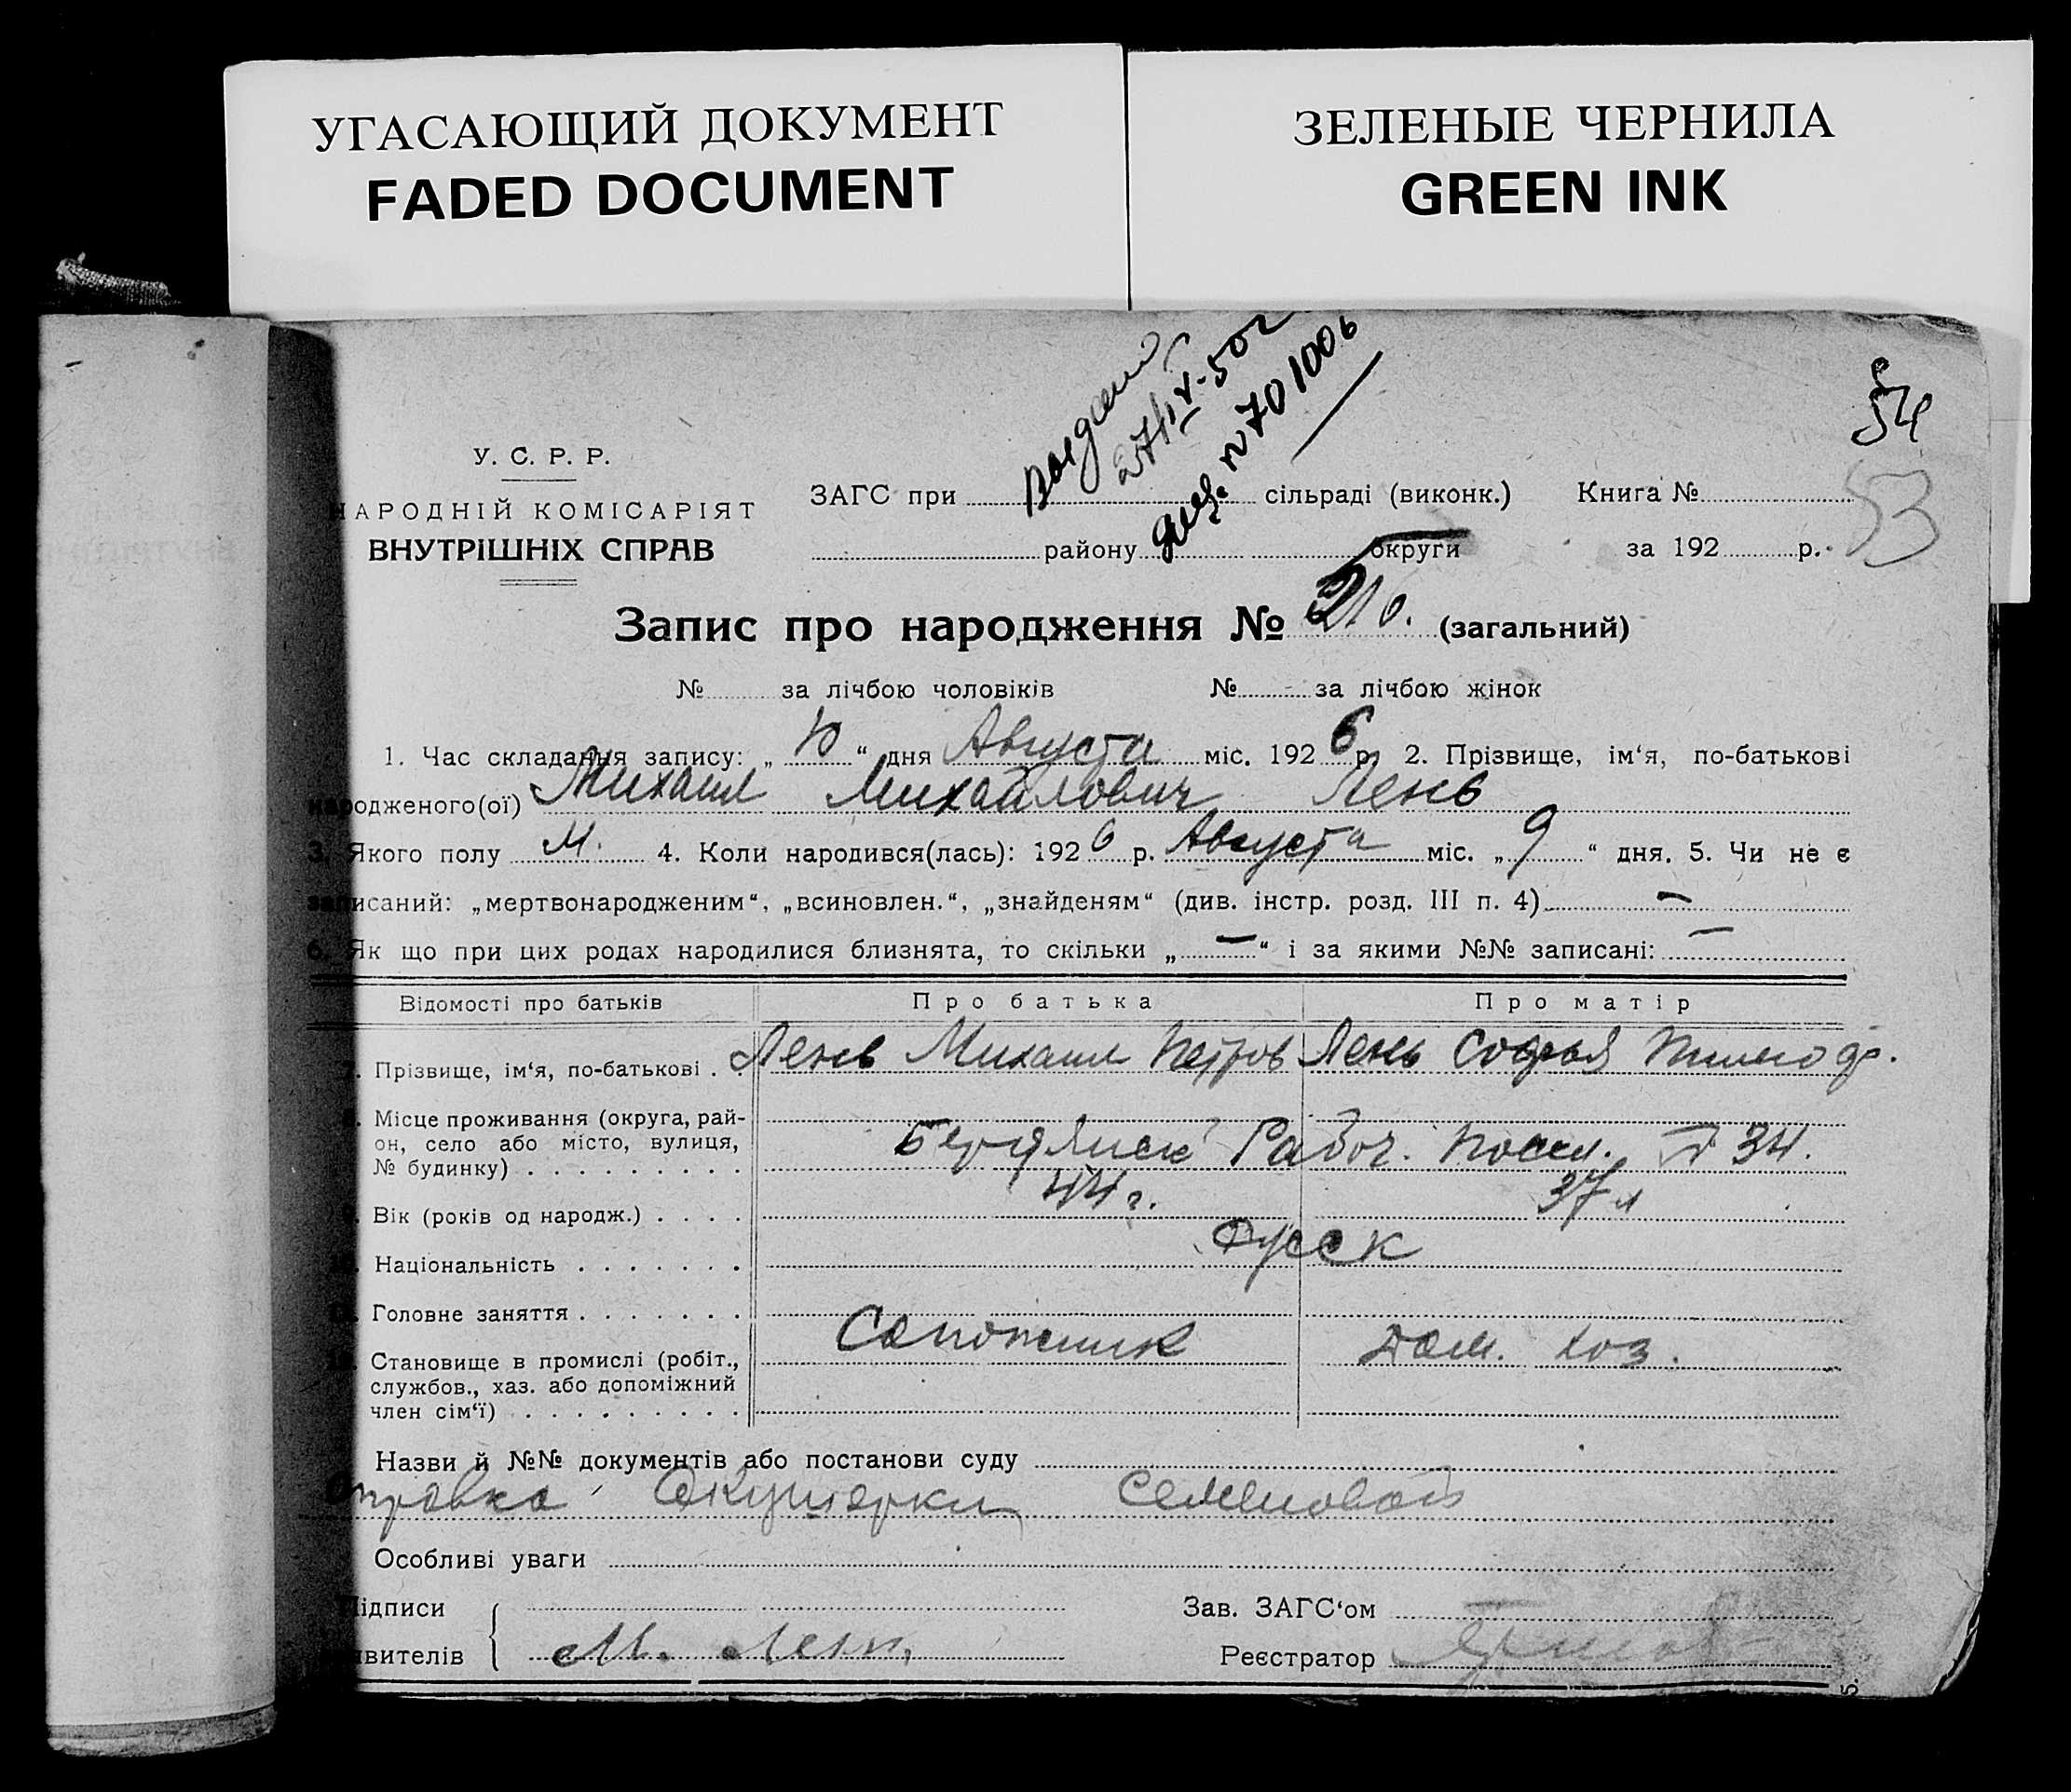 УГАСАЮЩИЙ ДОКУМЕНТ
FADED DOCUMENT
ЗЕЛЕНЫЕ ЧЕРНИЛА
GREEN INK
54
53
У. С. Р. Р.
НАРОДНІЙ КОМІСАРІЯТ
ВНУТРІШНІХ СПРАВ
ЗАГС при сільраді (виконк.) Книга №
району округи за 192 р.
Запис про народження № 210. (загальний)
№ за лічбою чоловіків № за лічбою жінок
1. Час складання запису: „10“ дня Августа міс. 1926 р. 2. Прізвище, ім‘я, по-батькові
народженого(ої) Михаил Михайлович Лень
3. Якого полу М. 4. Коли народився(лась): 1926 р. Августа міс. „9“ дня. 5. Чи не є
записаний: „мертвонародженим“, „всиновлен.“, „знайденям“ (див. інстр. розд. III п. 4) —
6. Як що при цих родах народилися близнята, то скільки „—“ і за якими №№ записані: —
Відомості про батьків Про батька Про матір
7. Прізвище, ім‘я, по-батькові . . Лень Михаил Петров Лень Софья
8. Місце проживання (округа, рай-
он, село або місто, вулиця,
№ будинку) . . . . . . . . . Бердянск Рабоч. Посел. 34.
9. Вік (років од народж.) . . . . 44 г. 37 л
10. Національність . . . . . . . Русск
11. Головне заняття . . . . . . .
Сапожник Дом. хоз.
12. Становище в промислі (робіт.,
службов., хаз. або допоміжний
член сім‘ї) . . . . . . . . .
Назви й №№ документів або постанови суду
Справка Акушерки Семеновой
Особливі уваги
Підписи Зав. ЗАГС‘ом
явителів М. Лень Реєстратор